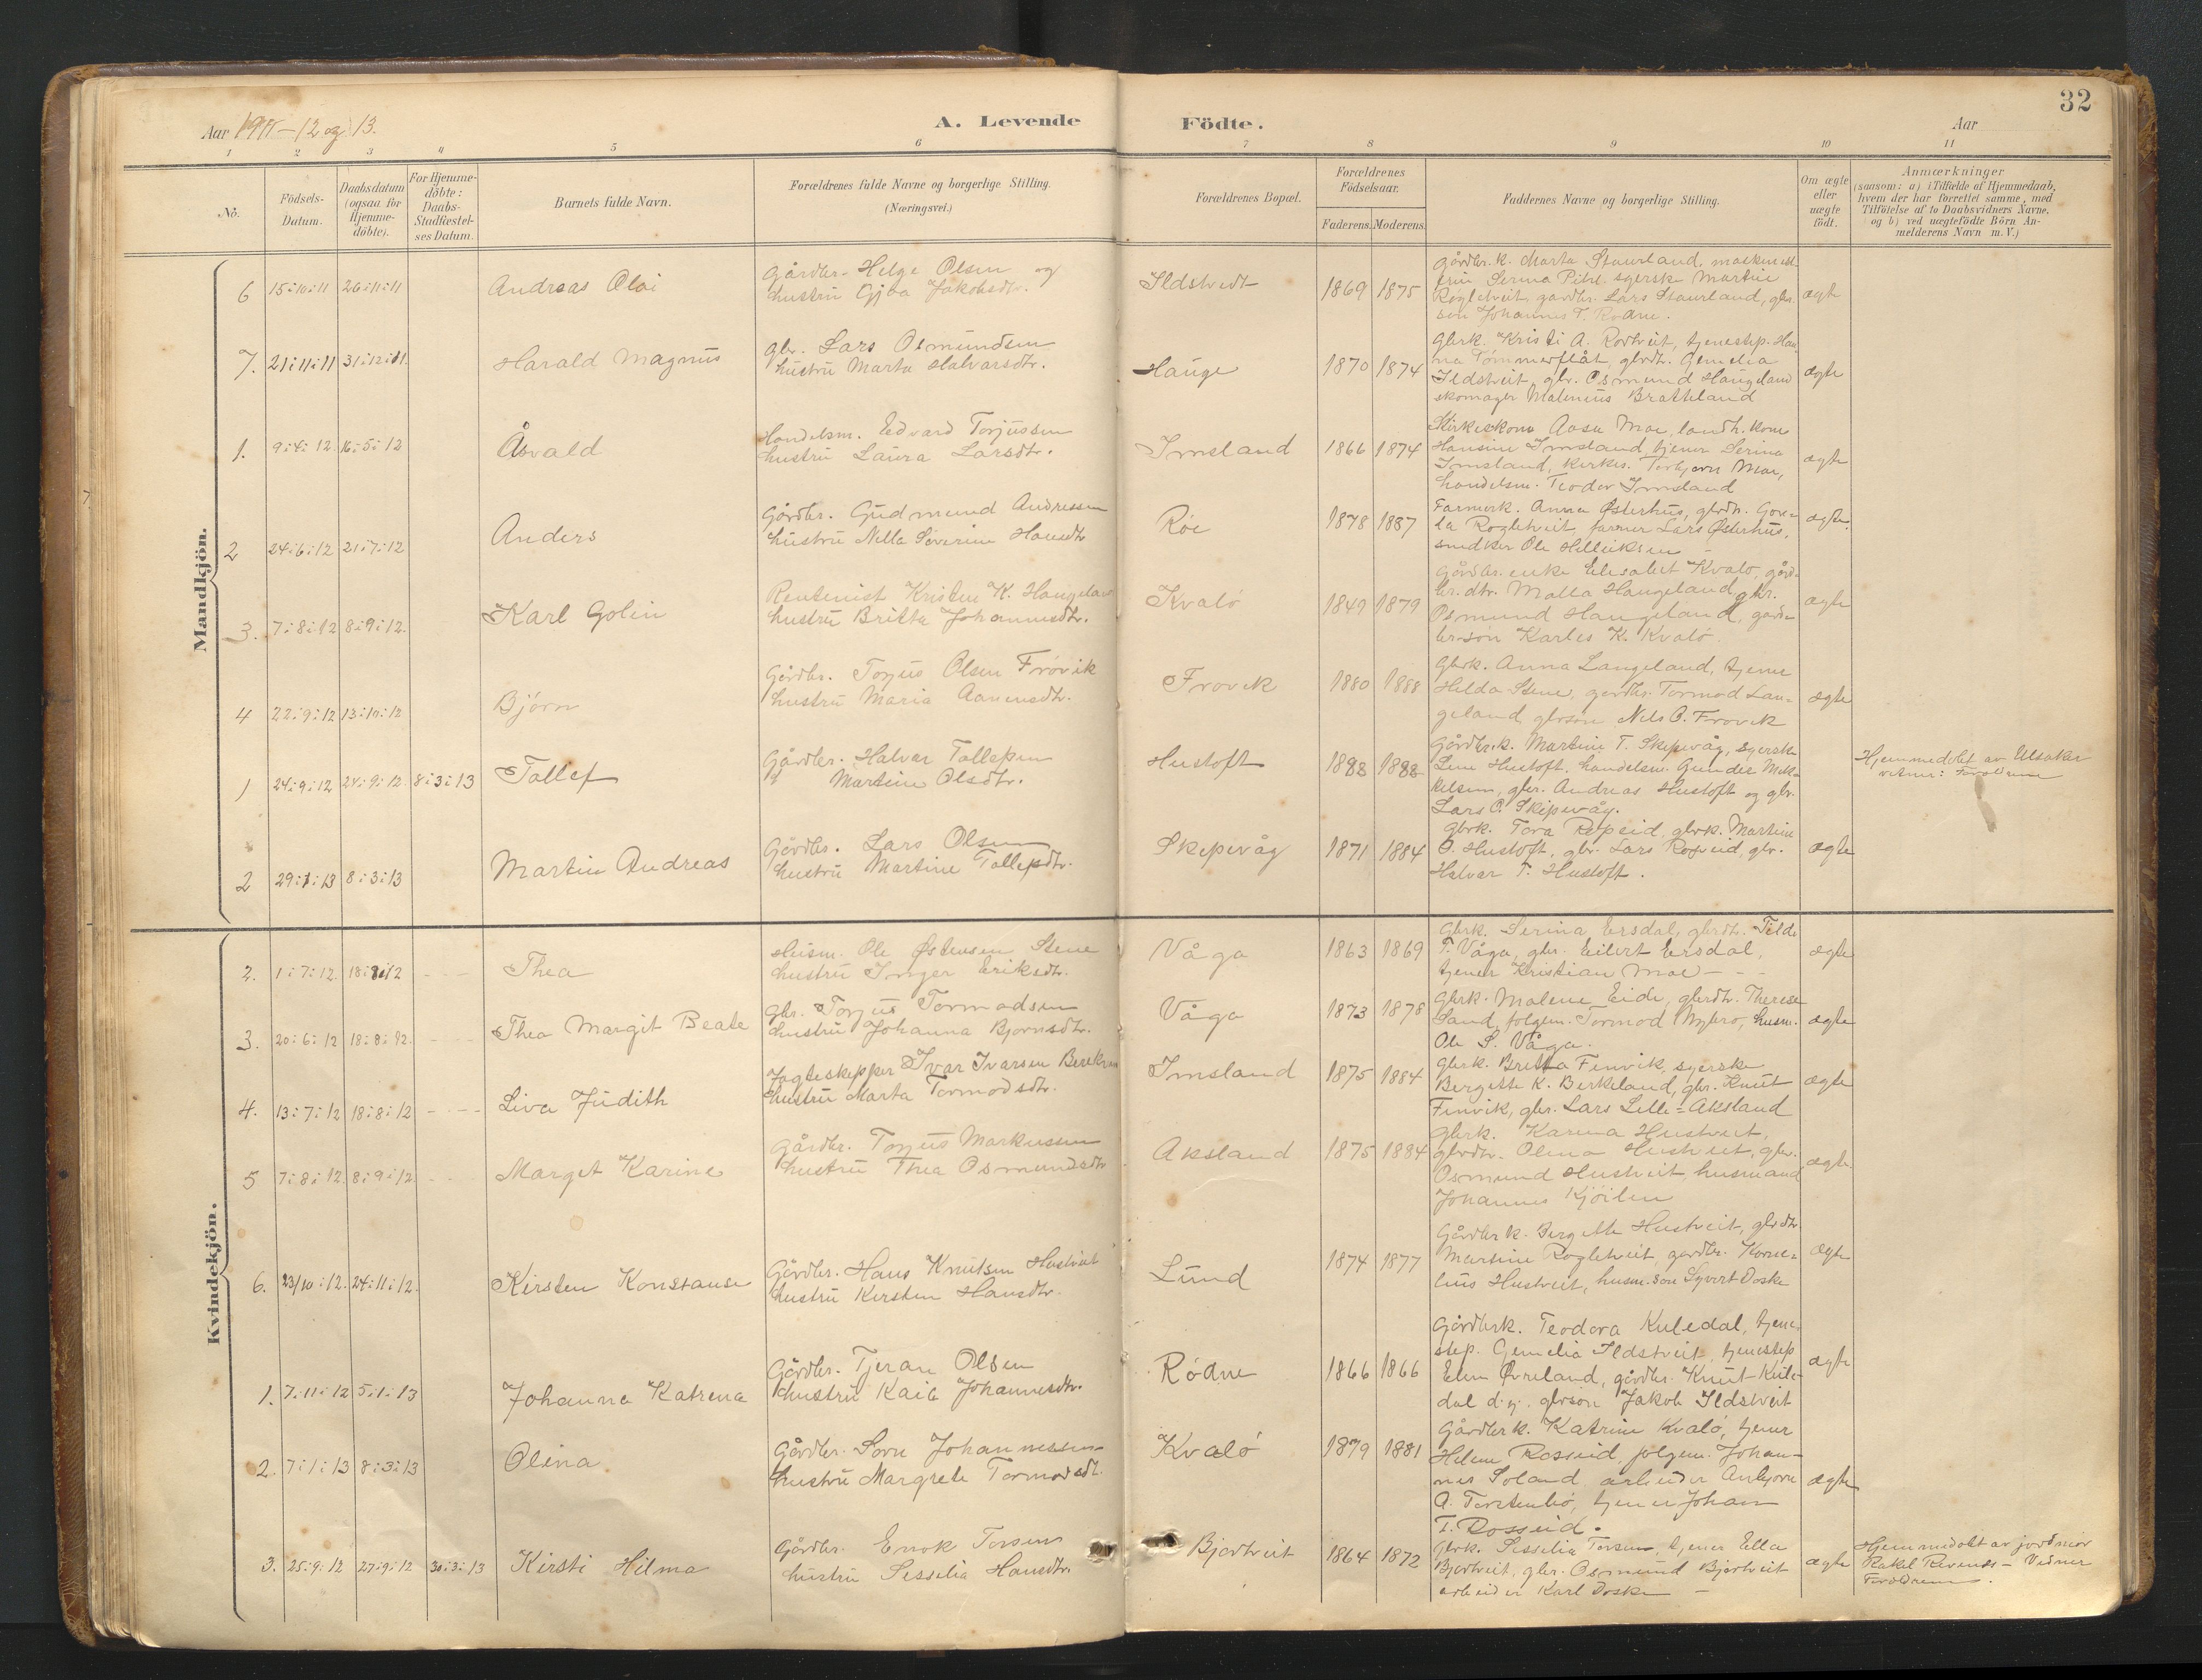 32
Aar 1911-12 og 13.
A. Levende Födte.
Aar
1 2 3 4 5 6 7 8 9 10 11
No.
Födsels-
Datum.
Daabsdatum
(ogsaa for
Hjemme-
döbte).
For Hjemme-
döbte:
Daabs-
Stadfæstel-
ses Datum.
Barnets fulde Navn.
Forældrenes fulde Navne og borgerlige Stilling.
(Næringsvei.)
Forældrenes Bopæl.
Forældrenes
Födselsaar.
Faderens. Moderens.
Faddernes Navne og borgerlige Stilling.
Om ægte
eller
uægte
födt.
Anmærkninger
(saasom: a) i Tilfælde af Hjemmedaab,
hvem der har forrettet samme, med
Tilföielse af to Daabsvidners Navne,
og b) ved uægtefödte Börn An-
melderens Navn m. V.)
Mandkjön.
6 15:10:11 26:11:11
Andreas Olai
Gårdbr. Helge Olsen og
hustru Gjöa Jakobsdtr.
Ildstvedt
1869 1875
Gårdbr.k. Marta Staurland,
Serina syerske Martine
Rogletveit, gardbr. Lars Staurland, gbr.
sön Johannes T. Rodne.
ægte
7. 21:11:11 31:12:11.
Harald Magnus
gbr. Lars Osmundsen
hustru Marta Halvarsdtr.
Hauge
1870 1874
Gbrk. Kristi A. Rodtveit, tjenestep. Han-
na Tömmerflåt, gbrdt. Gemelia
Ildstveit, gbr. Osmund Haugeland
skomager Malenius Bratteland
ægte
1. 9:4:12 16:5:12
Åsvald
Handelsm. Edvard Torjussen
hustru Laura Larsdtr.
Imsland
1866 1874
Kirkes.kone Aasa Moe, landh. kone
Hansine Imsland, tjener Serina
Imsland, kirkes. Torbjørn Moe,
handelsm. Teodor Imsland
ægte
2 24:6:12 21:7:12
Anders
Gårdbr. Gudmund Andressen
hustru Nella Severine Hansdtr
Röe
1878 1887
Farmerk. Anna Østerhus, gbrdtr.
Rogletveit, farmer Lars Østerhus,
snedker Ole Helliksen
ægte.
3. 7:8:12 8:9:12.
Karl Golin
Rentenist Kristen K. Haugeland
hustru Britta Johannesdtr.
Kvalö
1849 1879
Gårdbr. enke Elisabet Kvalö, gård-
br. dtr. Malla Haugeland, gbr.
Osmund Haugeland, gard-
br.sön Karles K. Kvalö.
ægte
4 22:9:12 13:10:12
Björn
Gårdbr. Torjus Olsen Frövik
hustru Maria Aanensdtr.
Frövik
1880 1888
Gbrk. Anna Langeland, tjene
Helda Stene, gardbr. Tormod Lan-
geland, gbrsön Nils O. Frövik
ægte
1 24:9:12 24:9:12 8:3:13
Tollef
Gårdbr. Halvar Tollefsen
Martine Olsdtr.
Hustoft
1883 1888
Gårdbr.k. Martine T. Skipevåg, syerske
Lene Hustoft, handelsm. Gunder Mik-
kelsen, gbr. Andreas Hustoft og gbr.
Lars O. Skipevåg.
ægte
Hjemmedöbt av Ulsaker
vidner: Forældrene
2 29:1:13 8:3:13
Martin Andreas
Gårdbr. Lars Olsen
hustru Martine Tollefsdtr.
Skipevåg
1871 1884
Gbrk. Tora Ropeid, gbrk. Martine
O. Hustoft, gbr. Lars Ropeid, gbr.
Halvar T. Hustoft.
ægte
Kvindekjön.
2. 1:7:12. 18:8:12
Thea
Husm. Ole Østensen Stene
hustru Inger Eriksdtr.
Våga
1863 1869
Gbrk. Serina Eersdal, gbrdtr. Tilde
T. Våga, gbr. Eilert Eersdal,
tjener Kristian Moe
ægte
3. 20:6:12 18:8:12.
Thea Margit Beate
Gbr. Torjus Tormodsen
hustru Johanna Bjornsdtr.
Våga
1873 1878
Gbrk. Malene Eide, gbrdtr. Therese
Sand, folgem. Tormod Nybrö, husm.
Ole S. Våga.
ægte
4. 13:7:12 18:8:12
Liva Judith
Jagteskipper Ivar Ivarsen
hustru Marta Tormodsdtr.
Imsland
1875 1884
Gbrk. Britta Finvik, syerske
Bergitte K. Berkeland, gbr. Knut
Finvik, gbr. Lars Lille-Aksland
ægte
5 7:8:12. 8:9:12.
Marget Karine
Gårdbr. Torjus Markussen
hustru Thea Osmundsdtr
Aksland
1875 1884
Gbrk. Karina Hustveit,
gbrdtr. Olena Hustveit, gbr.
Osmund Hustveit, husmand
Johannes Kjöilen
ægte.
6. 23/10:12. 24:11:12.
Kirsten Konstanse
Gårdbr. Hans Knutsen Hustveit
hustru Kirsten Hansdtr.
Lund
1874 1877
Gårdbr k. Bergitte Hustveit, gbrdtr
Martine Rogletveit, gardbr. Korne-
lius Hustveit, husm. sön Syvert Doske
ægte
1. 7:11:12 5:1:13
Johanna Katrena
Gårdbr. Tjeran Olsen
hustru Kaia Johannesdtr.
Rödne
1866 1866
Gårdbrk. Teodora Kuledal, tjene-
step. Gemelia Ildstveit, tjenestep
Elen Øvreland, gårdbr. Knut Kule-
dal d.y. gbrsön Jakob Ildstveit
ægte
2. 7:1:13 8:3:13
Olina
Gårdbr. Sorn Johannessen
hustru Margrete Tormodsdt.
Kvalö
1879 1881
Gårdbr k. Katrine Kvalö, tjener
Helene Rosseid, folgem. Johan-
nes Soland, arbeider Anbjorn
A. Torstenbö, tjener Johan
T. Rosseid.
ægte
3. 25:9:12 27:9:12 30:3:13
Kirsti Hilma
Gårdbr. Enok Torsen
hustru Sesselia Hansdtr.
Bjortveit
1864 1872
Gbrk. Sesselia Torsen, tjener Ella
Bjortveit, gbr. Osmund Bjortveit
arbeider Karl Doske
ægte
Hjemmedöbt av jordmor
Rakel - Vidner
Forældrene.